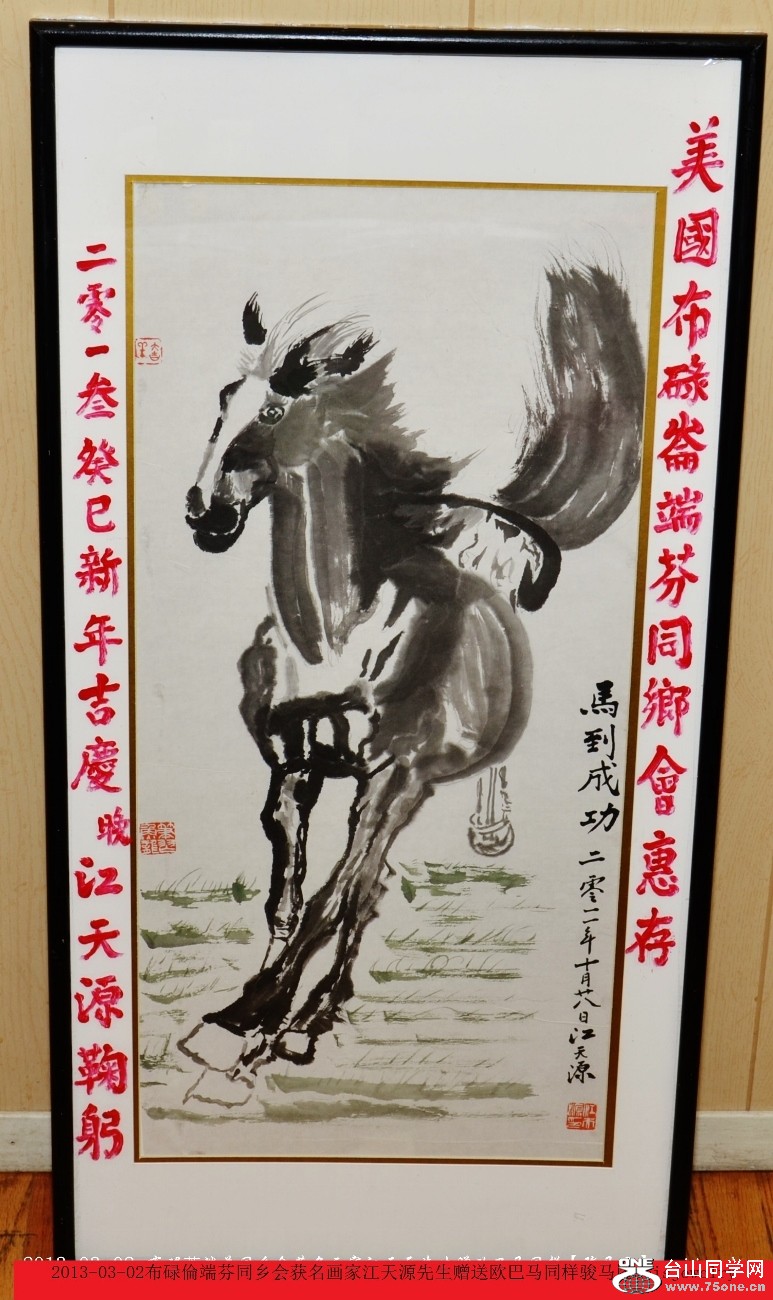 美國布碌崙端芬同鄉會惠存
馬到成功
二零一一年十月廿八日江天源
二零一叁癸巳新年吉慶
晚江天源鞠躬
2013-03-02布碌倫端芬同乡会获名画家江天源先生赠送欧巴马同样骏马
ONE
台山同学网
www.75one.com